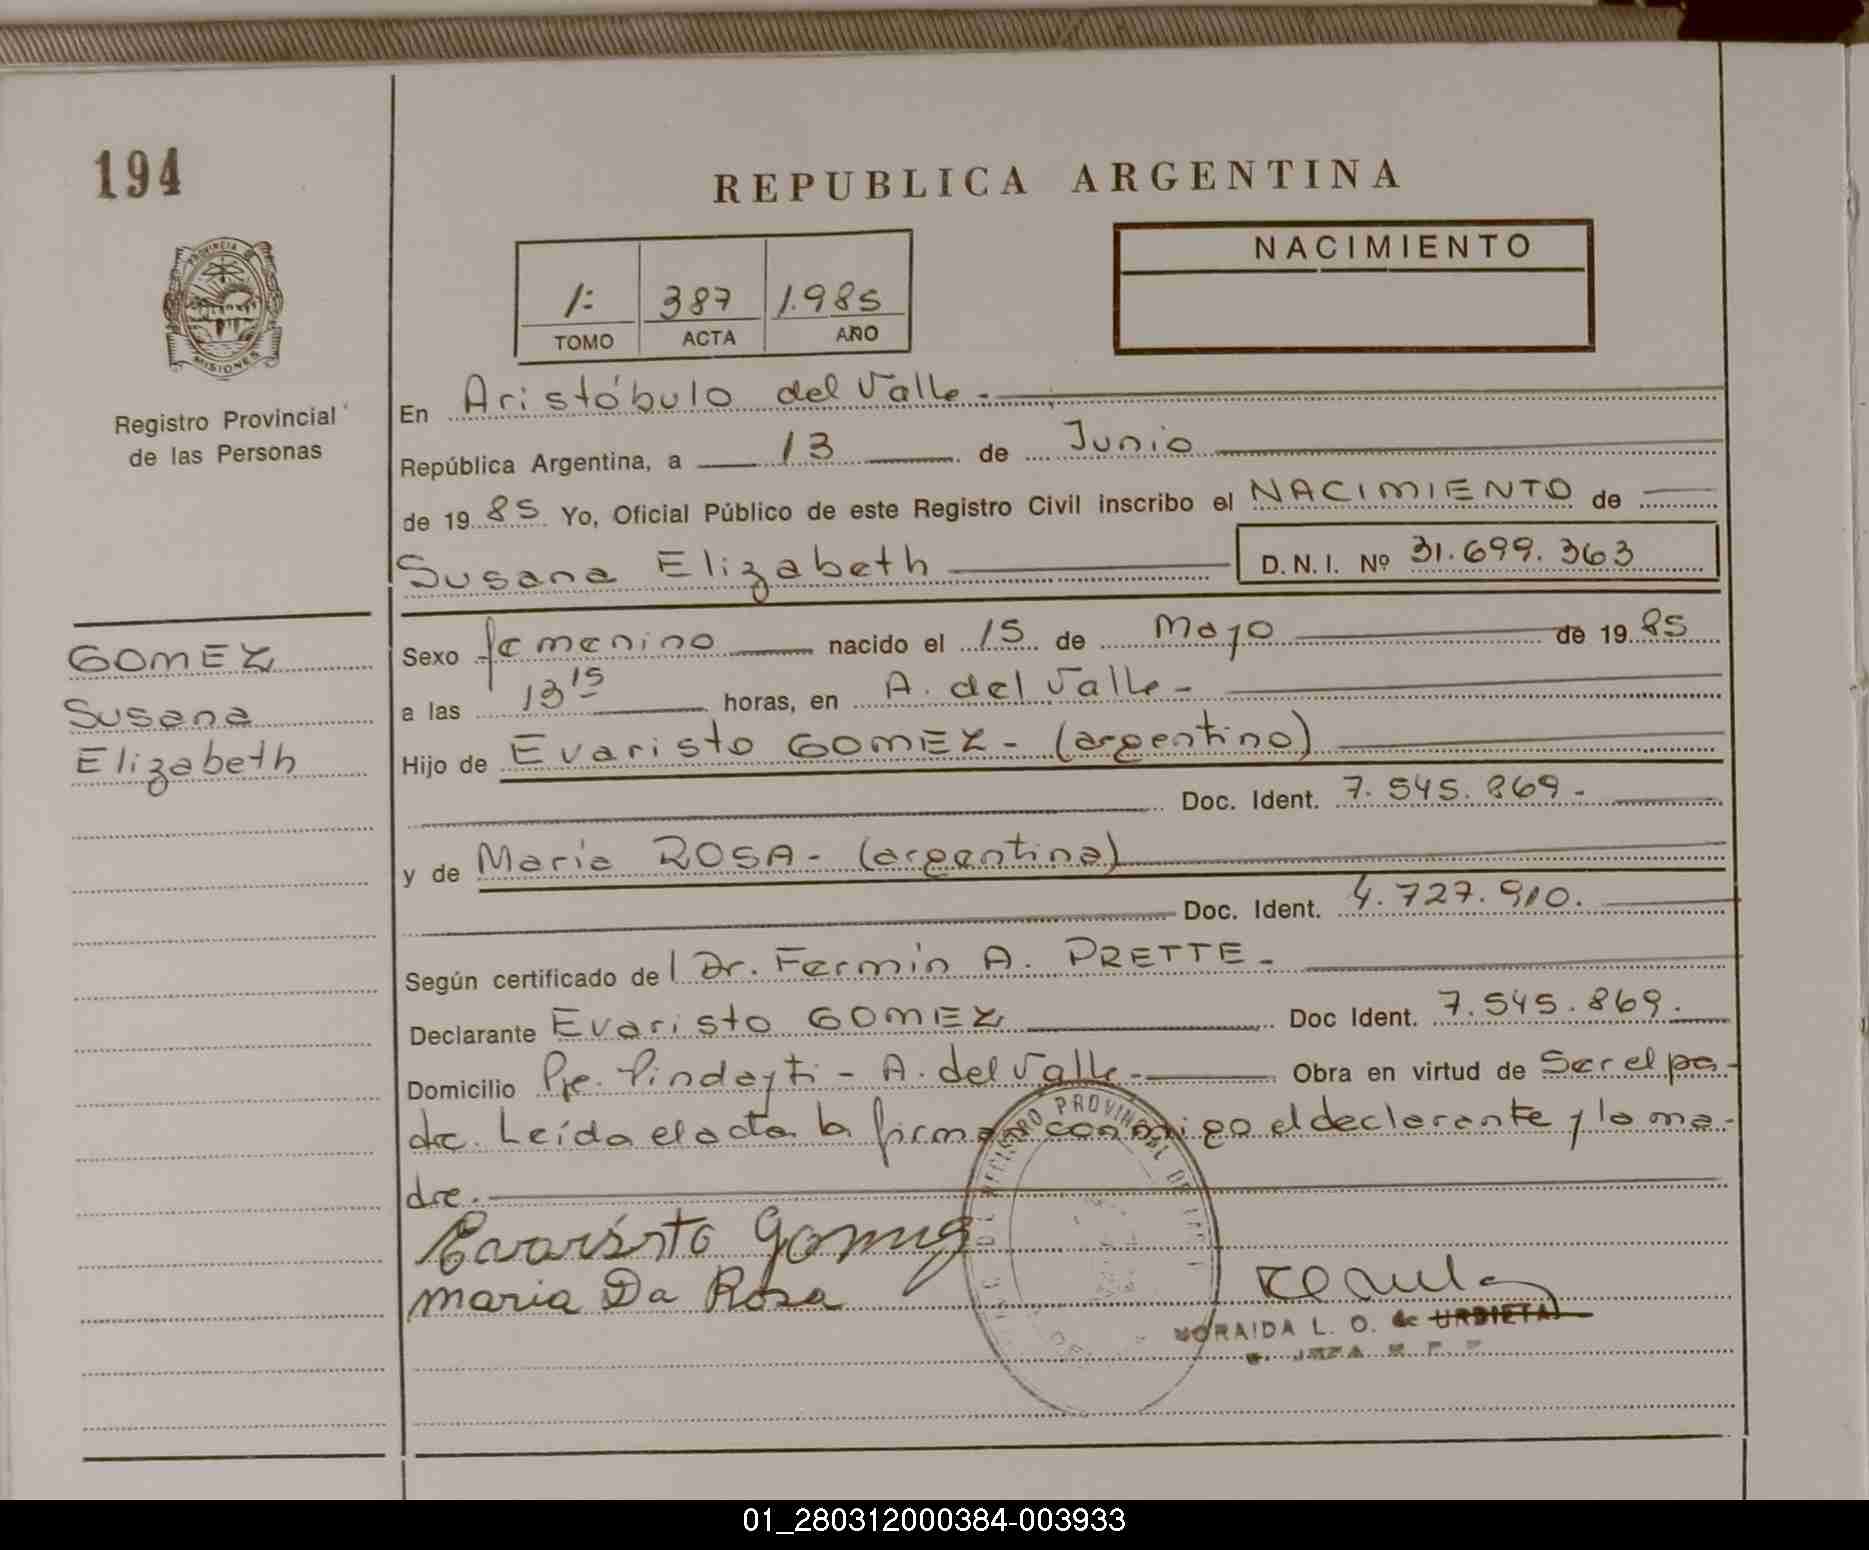 194
REPUBLICA ARGENTINA
PROVINCIA DE
MISIONES
Registro Provincial
de las Personas
1:
387
1.985
TOMO
ACTA
AÑO
NACIMIENTO
En Aristóbulo del Valle.-
República Argentina, a 13 de Junio
de 19 85 Yo, Oficial Público de este Registro Civil inscribo el NACIMIENTO de
Susana Elizabeth D.N.I. Nº 31.699.363
GOMEZ
Susana
Elizabeth
Sexo femenino nacido el 15 de Mayo de 19 85
a las 13 15 horas, en A. del Valle -
Hijo de Evaristo GOMEZ - (argentino)
Doc. Ident. 7.545.869.-
y de María ROSA - (argentina)
Doc. Ident. 4.727.910.
Según certificado del Dr. Fermín A. PRETTE -
Declarante Evaristo GOMEZ Doc Ident. 7.545.869.
Domicilio Pje. Pindayti - A. del Valle - Obra en virtud de Ser el pa-
dre. Leída el acta la firman conmigo el declarante y la ma-
dre.
REGISTRO PROVINCIAL DE
Evaristo Gomez
maria Da Rosa
NORAIDA L. O. de URBIETA
JEFA
01_280312000384-003933